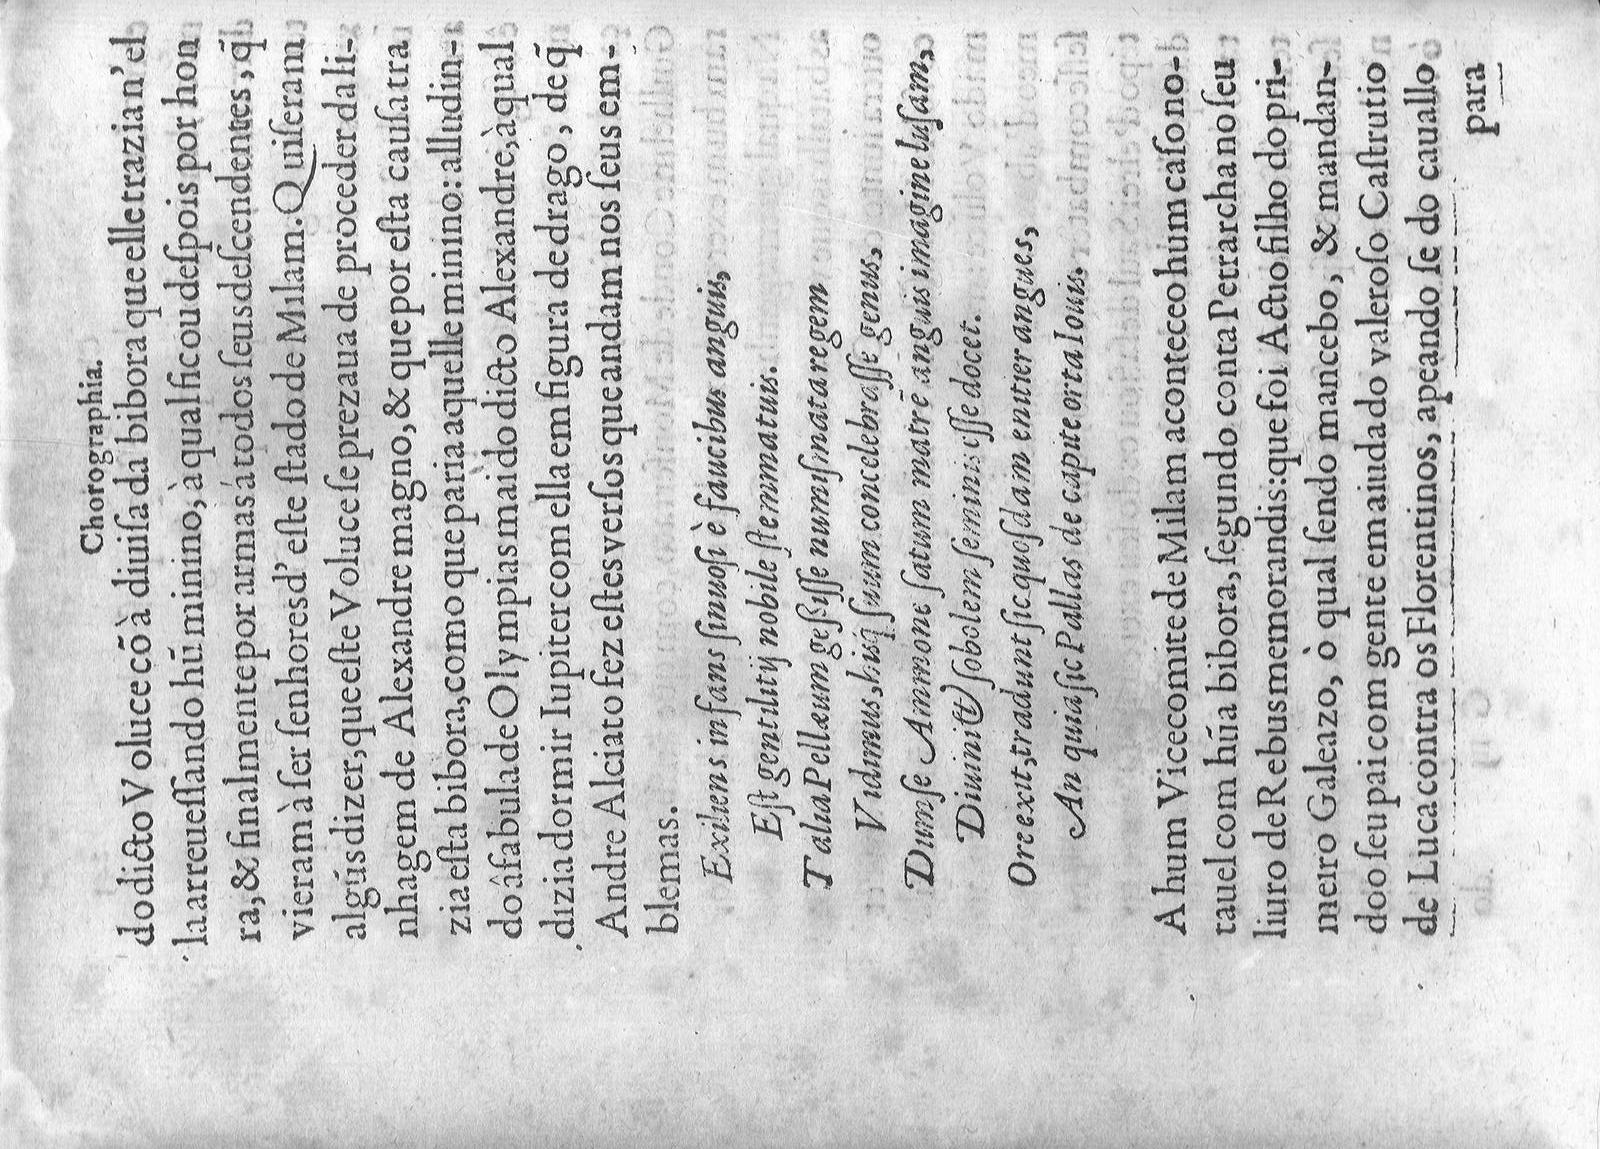 Chorographia.
do dicto Voluce cõ à diuiſa da bibora que elle trazia n'el
la arreueſſando hũ minino, à qual ficou deſpois por hon
ra, & finalmente por armas á todos ſeus deſcendentes, q̃
vieram à ſer ſenhores d' eſte ſtado de Milam. Quiſeram
algũs dizer, que eſte Voluce ſe prezaua de proceder da li-
nhagem de Alexandre magno, & que por eſta cauſa tra
zia eſta bibora, como que paria aquelle minino: alludin-
do â fabula de Olympias mai do dicto Alexandre, à qual
dizia dormir Iupiter com ella em figura de drago, de q̃
Andre Alciato fez eſtes verſos que andam nos ſeus em-
blemas.
Exiliens infans ſinuoſi è faucibus anguis,
Eſt gentilitij nobile ſtemma tuis.
Talia Pellæum geſsiſſe numiſmata regem
Vidimus, hisq́ ſuum concelebraſſe genus,
Dum ſe Ammone ſatum matrẽ anguis imagine luſam,
Diuini & ſobolem ſeminis eſſe docet.
Ore exit, tradunt ſic quoſdam enitier angues,
An quia ſic Pallas de capite orta Iouis.
A hum Vicecomite de Milam aconteceo hum caſo no-
tauel com hũa bibora, ſegundo conta Petrarcha no ſeu
liuro de Rebus memorandis: que foi Actio filho do pri-
meiro Galeazo, ò qual ſendo mancebo, & mandan-
do o ſeu pai com gente em aiuda do valeroſo Caſtrutio
de Luca contra os Florentinos, apeando ſe do cauallo
para